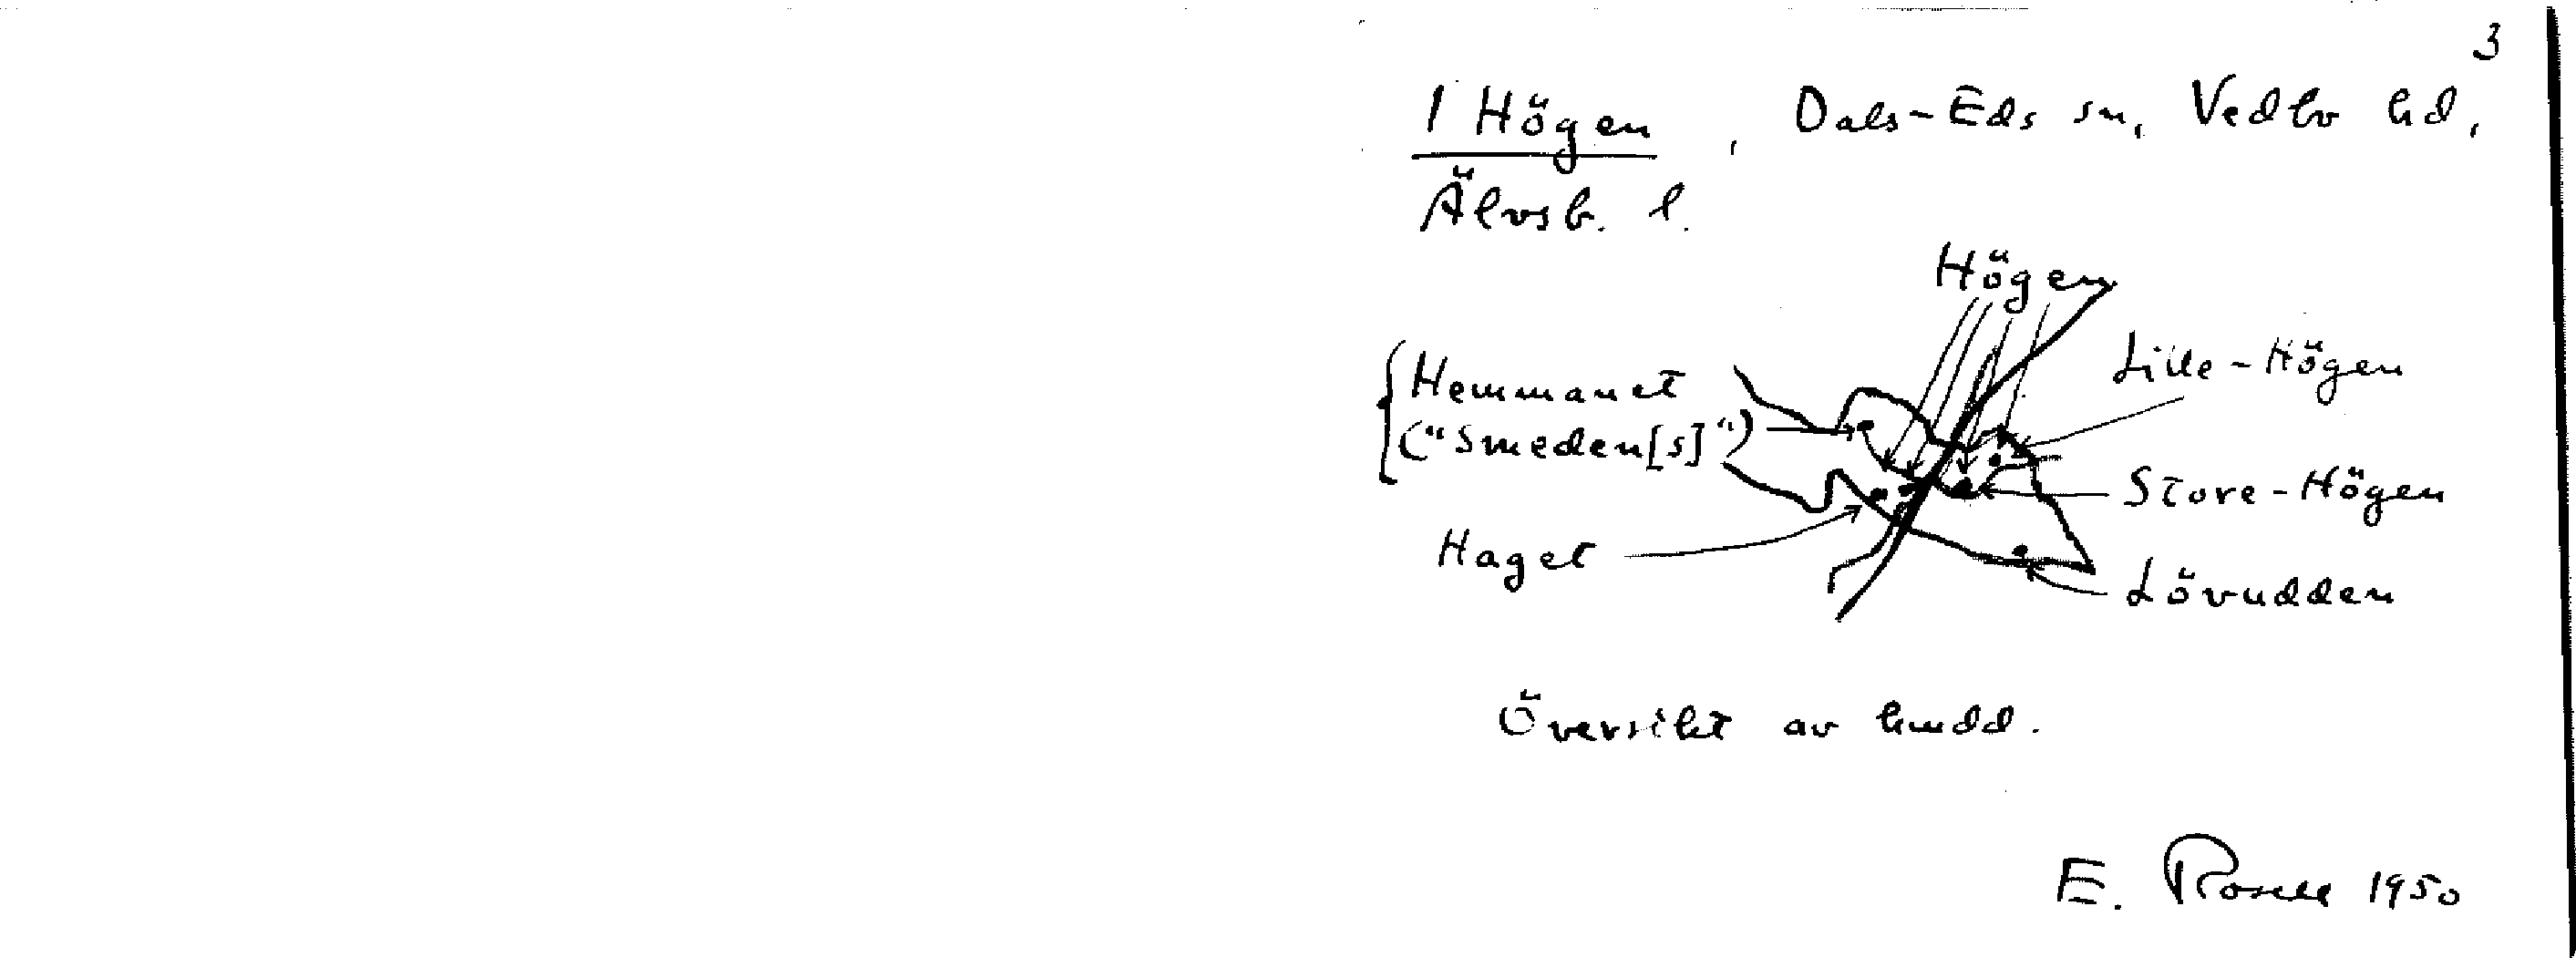 3
1 Högen, Dals-Eds sn, Vedbo hd,
Älvsb. l.
Högen
Lille-Högen
Hemmanet
("Smeden[s]")
Store-Högen
Haget
Lövudden
Översikt av hmdd.
E. Rosell 1950